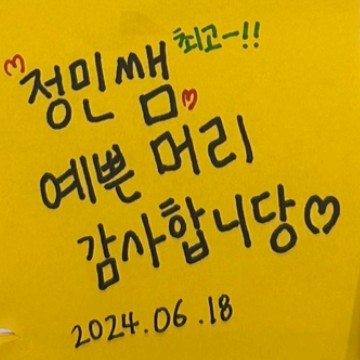 정민쌤 최고-!!
예쁜 머리
감사합니당
2024.06.18